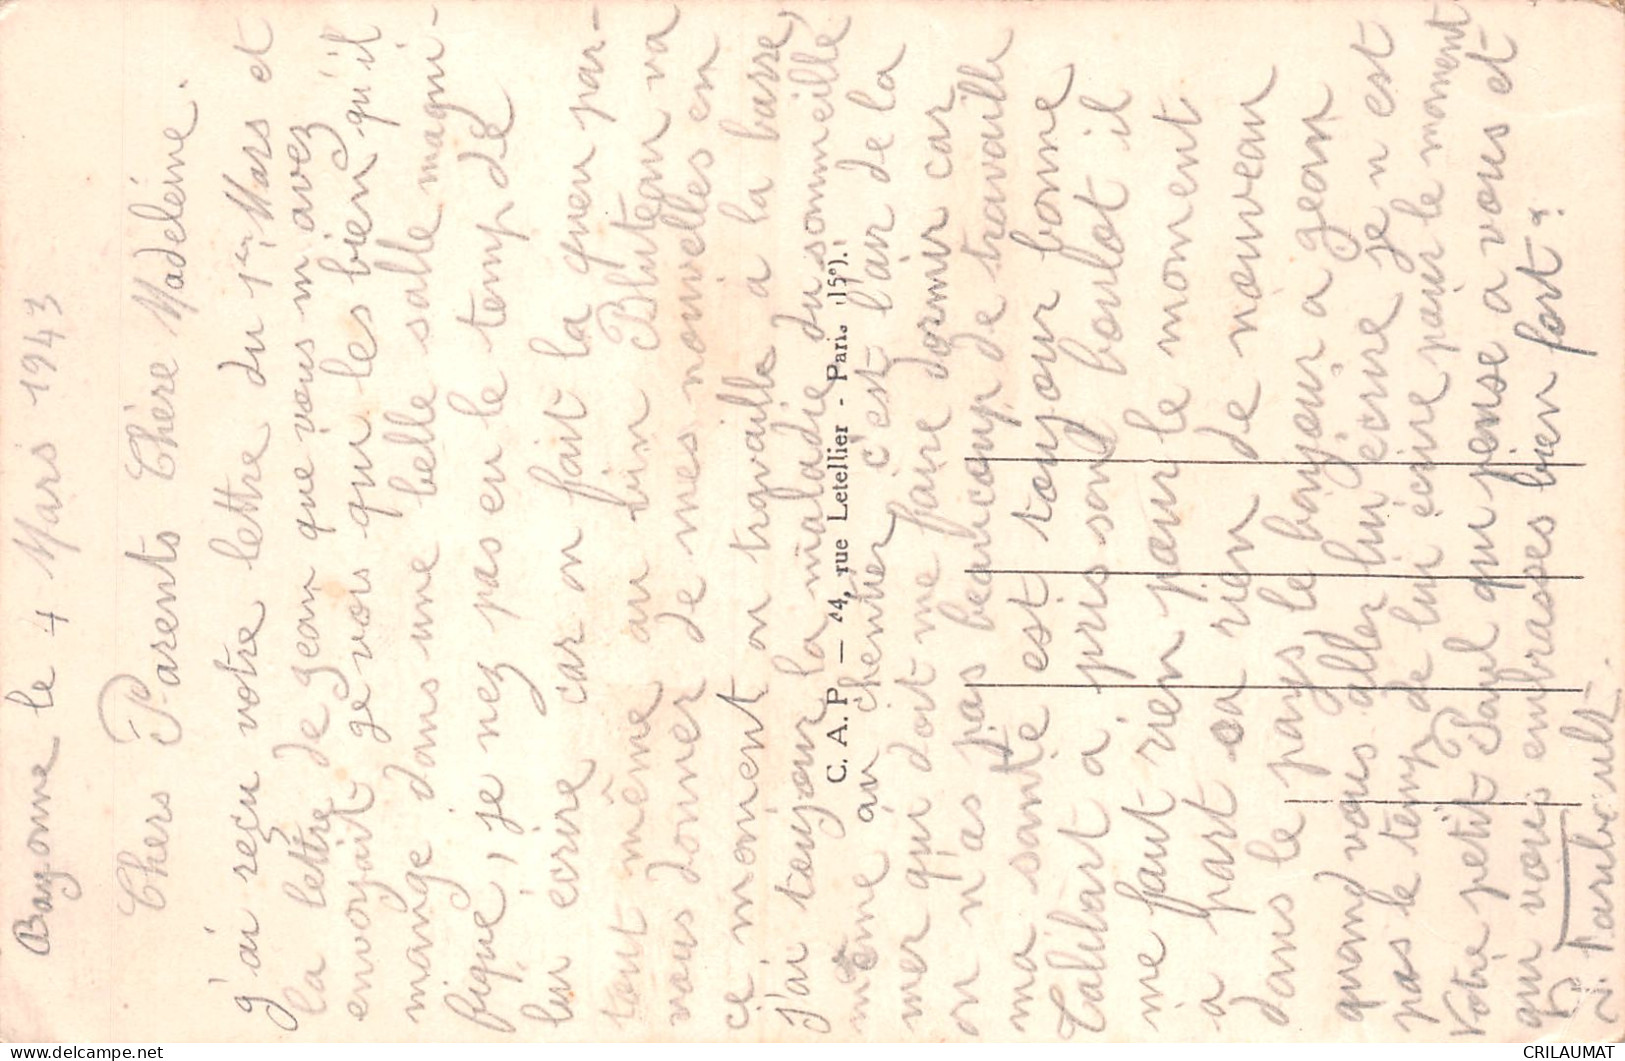 Bayonne le 4 Mars 1943
Chers Parents Chère Madeleine.
j'ai reçu votre lettre du 1er Mars et
la lettre de jean que vous m'avez
envoyait je vois qu les bien qu'il
mange dans une belle salle magni-
fique, je nez pas eu le temp de
lui écrire car on fait la queu par-
tout même au bin Bluteau va
vous donner de mes nouvelles en
ce moment on travaille a la basse
J'ai toujour la maladie du sommeille
même au chentier c'est l'air de la
mer qui doit me faire dormir car
on n'as pas beaucoup de travaille
ma santé est toujour bonne
a pris son boulot il
me faut rien pour le moment
a part ca rien de nouveau
dans le pays le bonjour a jean
quand vous aller lui écrire je n est
pas le temp de lui écire pour le moment
Votre petit Paul qui pense a vous et
qui vous embrasses bien fort.
C. A. P — 44, rue Letellier - Paris (15e).
CRILAUMAT